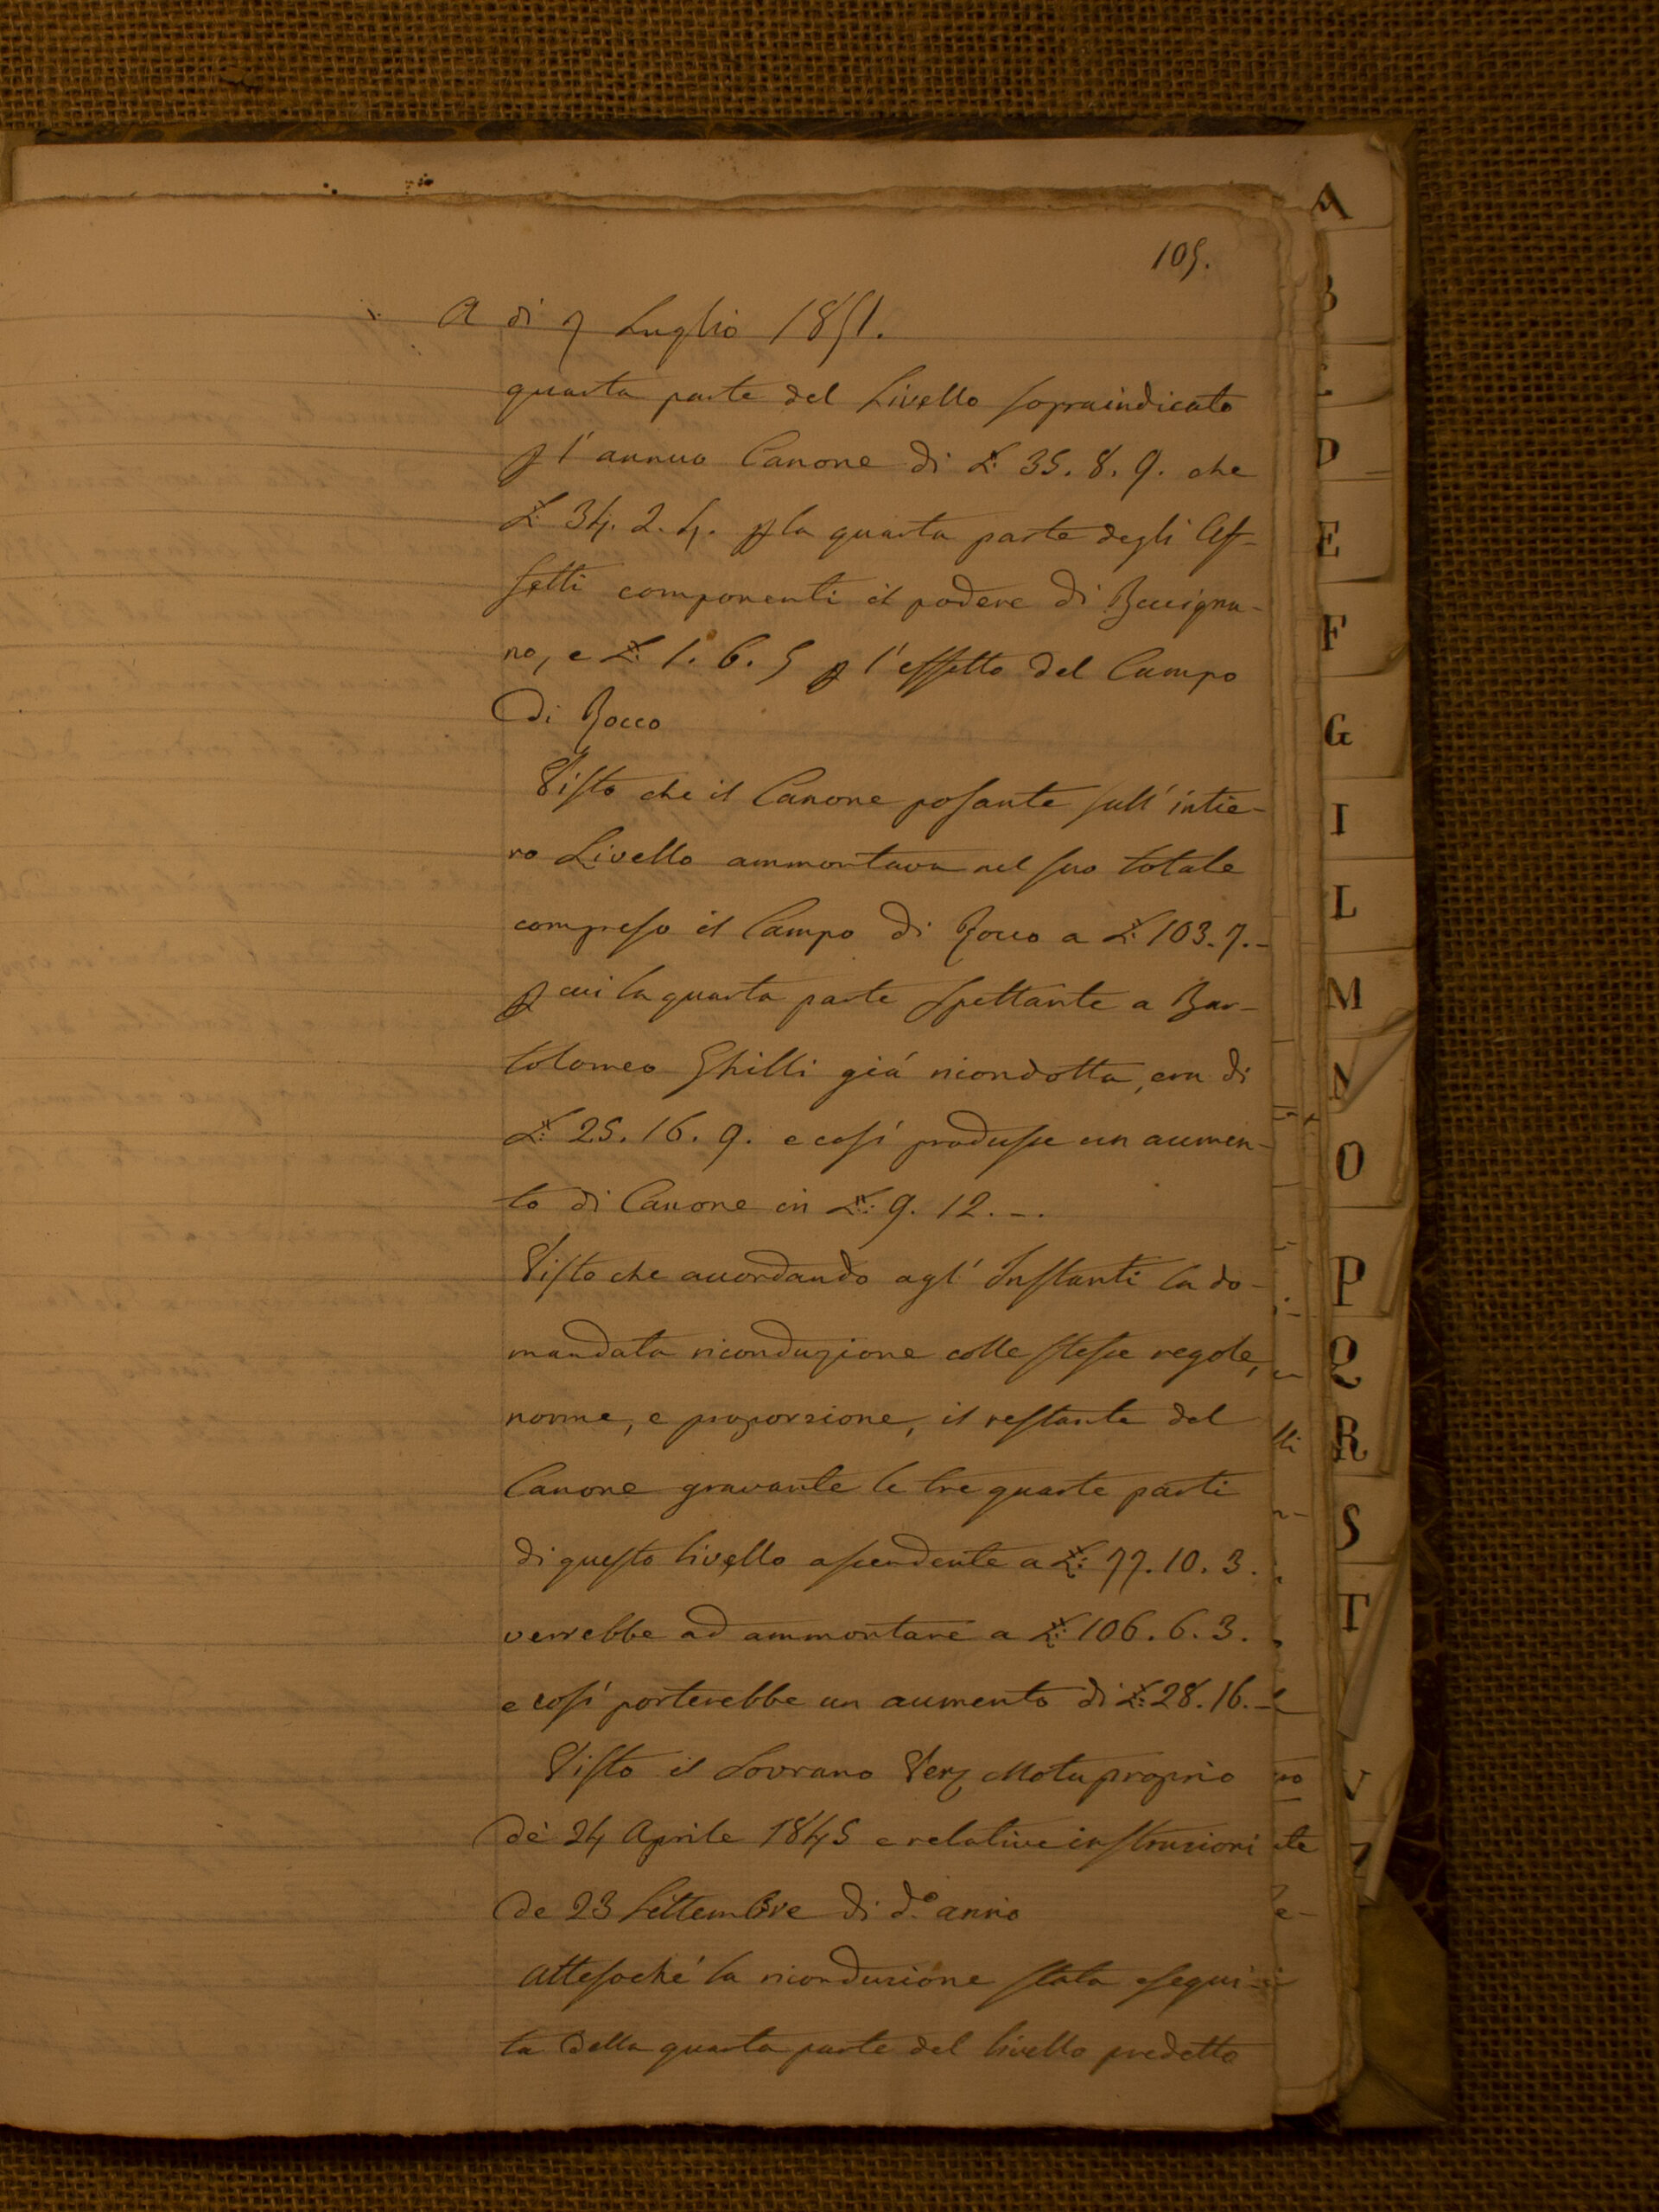 105.
A dì 7 Luglio 1851.
quarta parte del Livello sopraindicato
p l'annuo Canone di £: 35. 8. 9. che
£: 34. 2. 4. p la quarta parte degli Ef-
fetti componenti il podere di
no, e £: 1. 6. 5 p l'effetto del Campo
di Rocco
Visto che il Canone posante sull'intie-
ro Livello ammontava nel suo totale
compreso il Campo di Rocco a £: 103. 7. -
p cui la quarta parte spettante a Bar-
tolomeo Ghilli già ricondotta, era di
£: 25. 16. 9. e così produsse un aumen-
to di Canone in £: 9. 12. -.
Visto che accordando agl'Instanti la do-
mandata riconduzione colle stesse regole,
norme, e proporzione, il restante del
Canone gravante le tre quarte parti
di questo livello ascendente a £: 77. 10. 3.
verrebbe ad ammontare a £: 106. 6. 3.
e così porterebbe un aumento di £: 28. 16. -
Visto il Sovrano Motuproprio
de 24 Aprile 1845 e relative instruzioni
de 23 Settembre di d.° anno
Attesoché la riconduzione stata esegui-
ta della quarta parte del livello predetto
A
B
D
E
F
G
I
L
M
N
O
P
Q
R
S
T
V